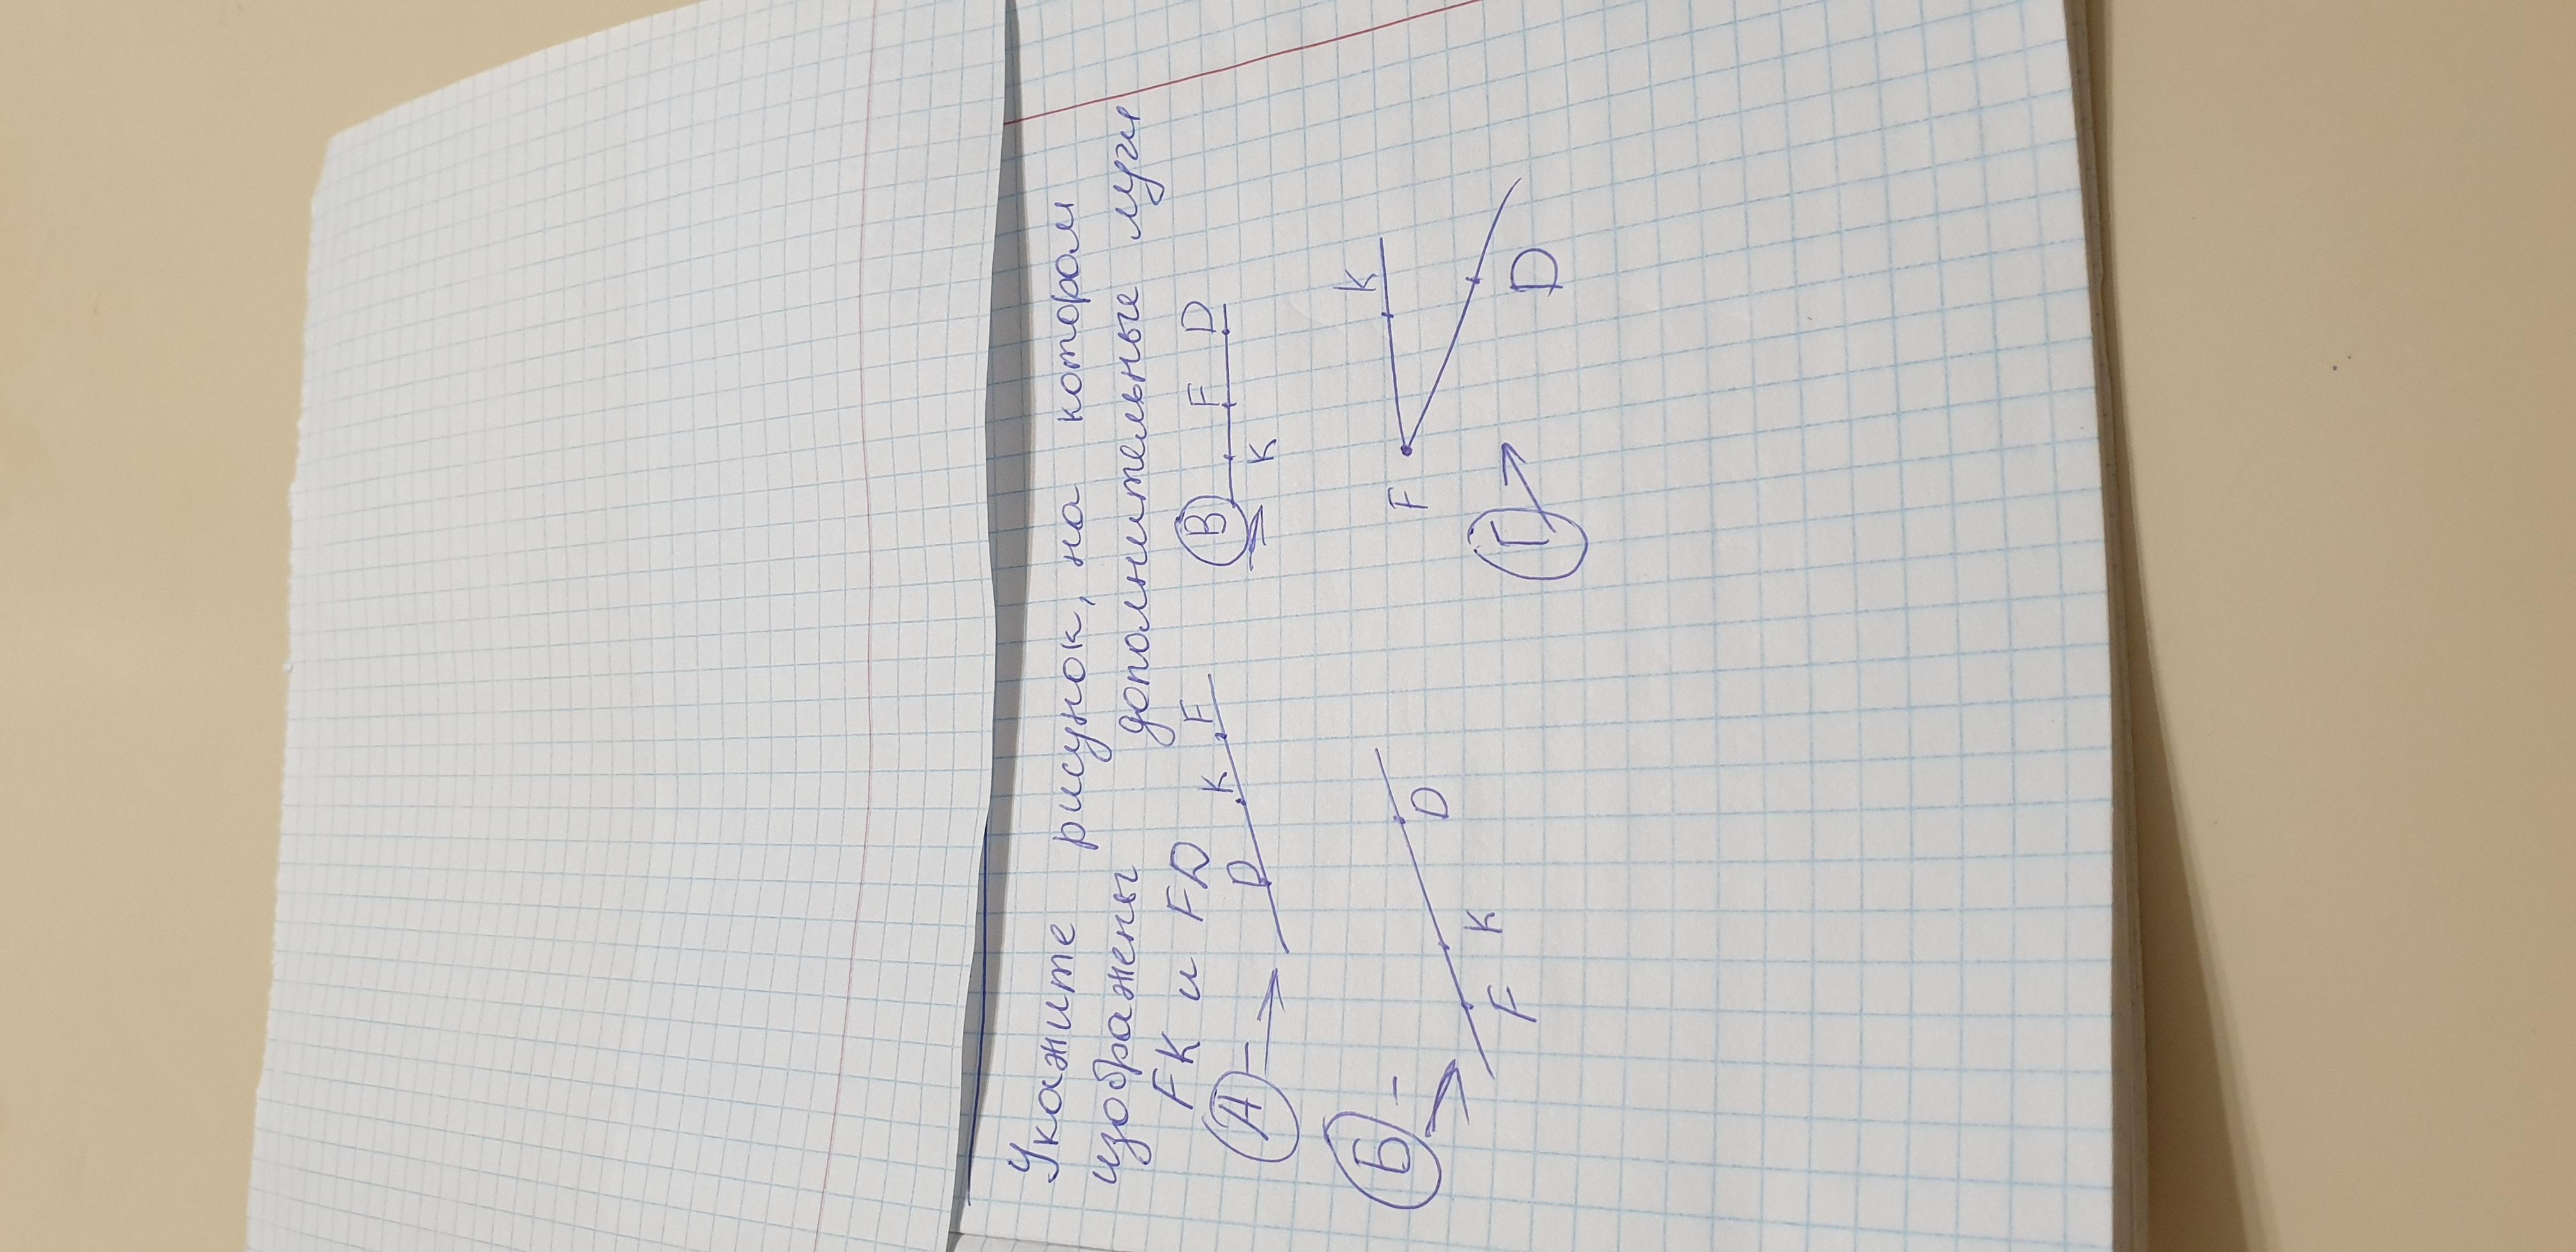 Укажите рисунок, на котором
изображены дополнительные лучи
FK и FD
А D K F
В K F D
Б F K D
Г F K D